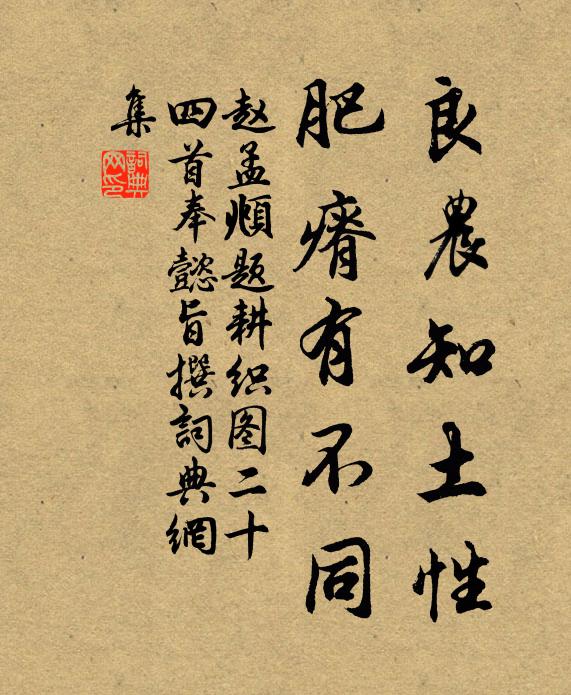 良農知土性
肥瘠有不同
赵孟頫题耕织图二十
四首奉懿旨撰詞典網
集
詞典網印